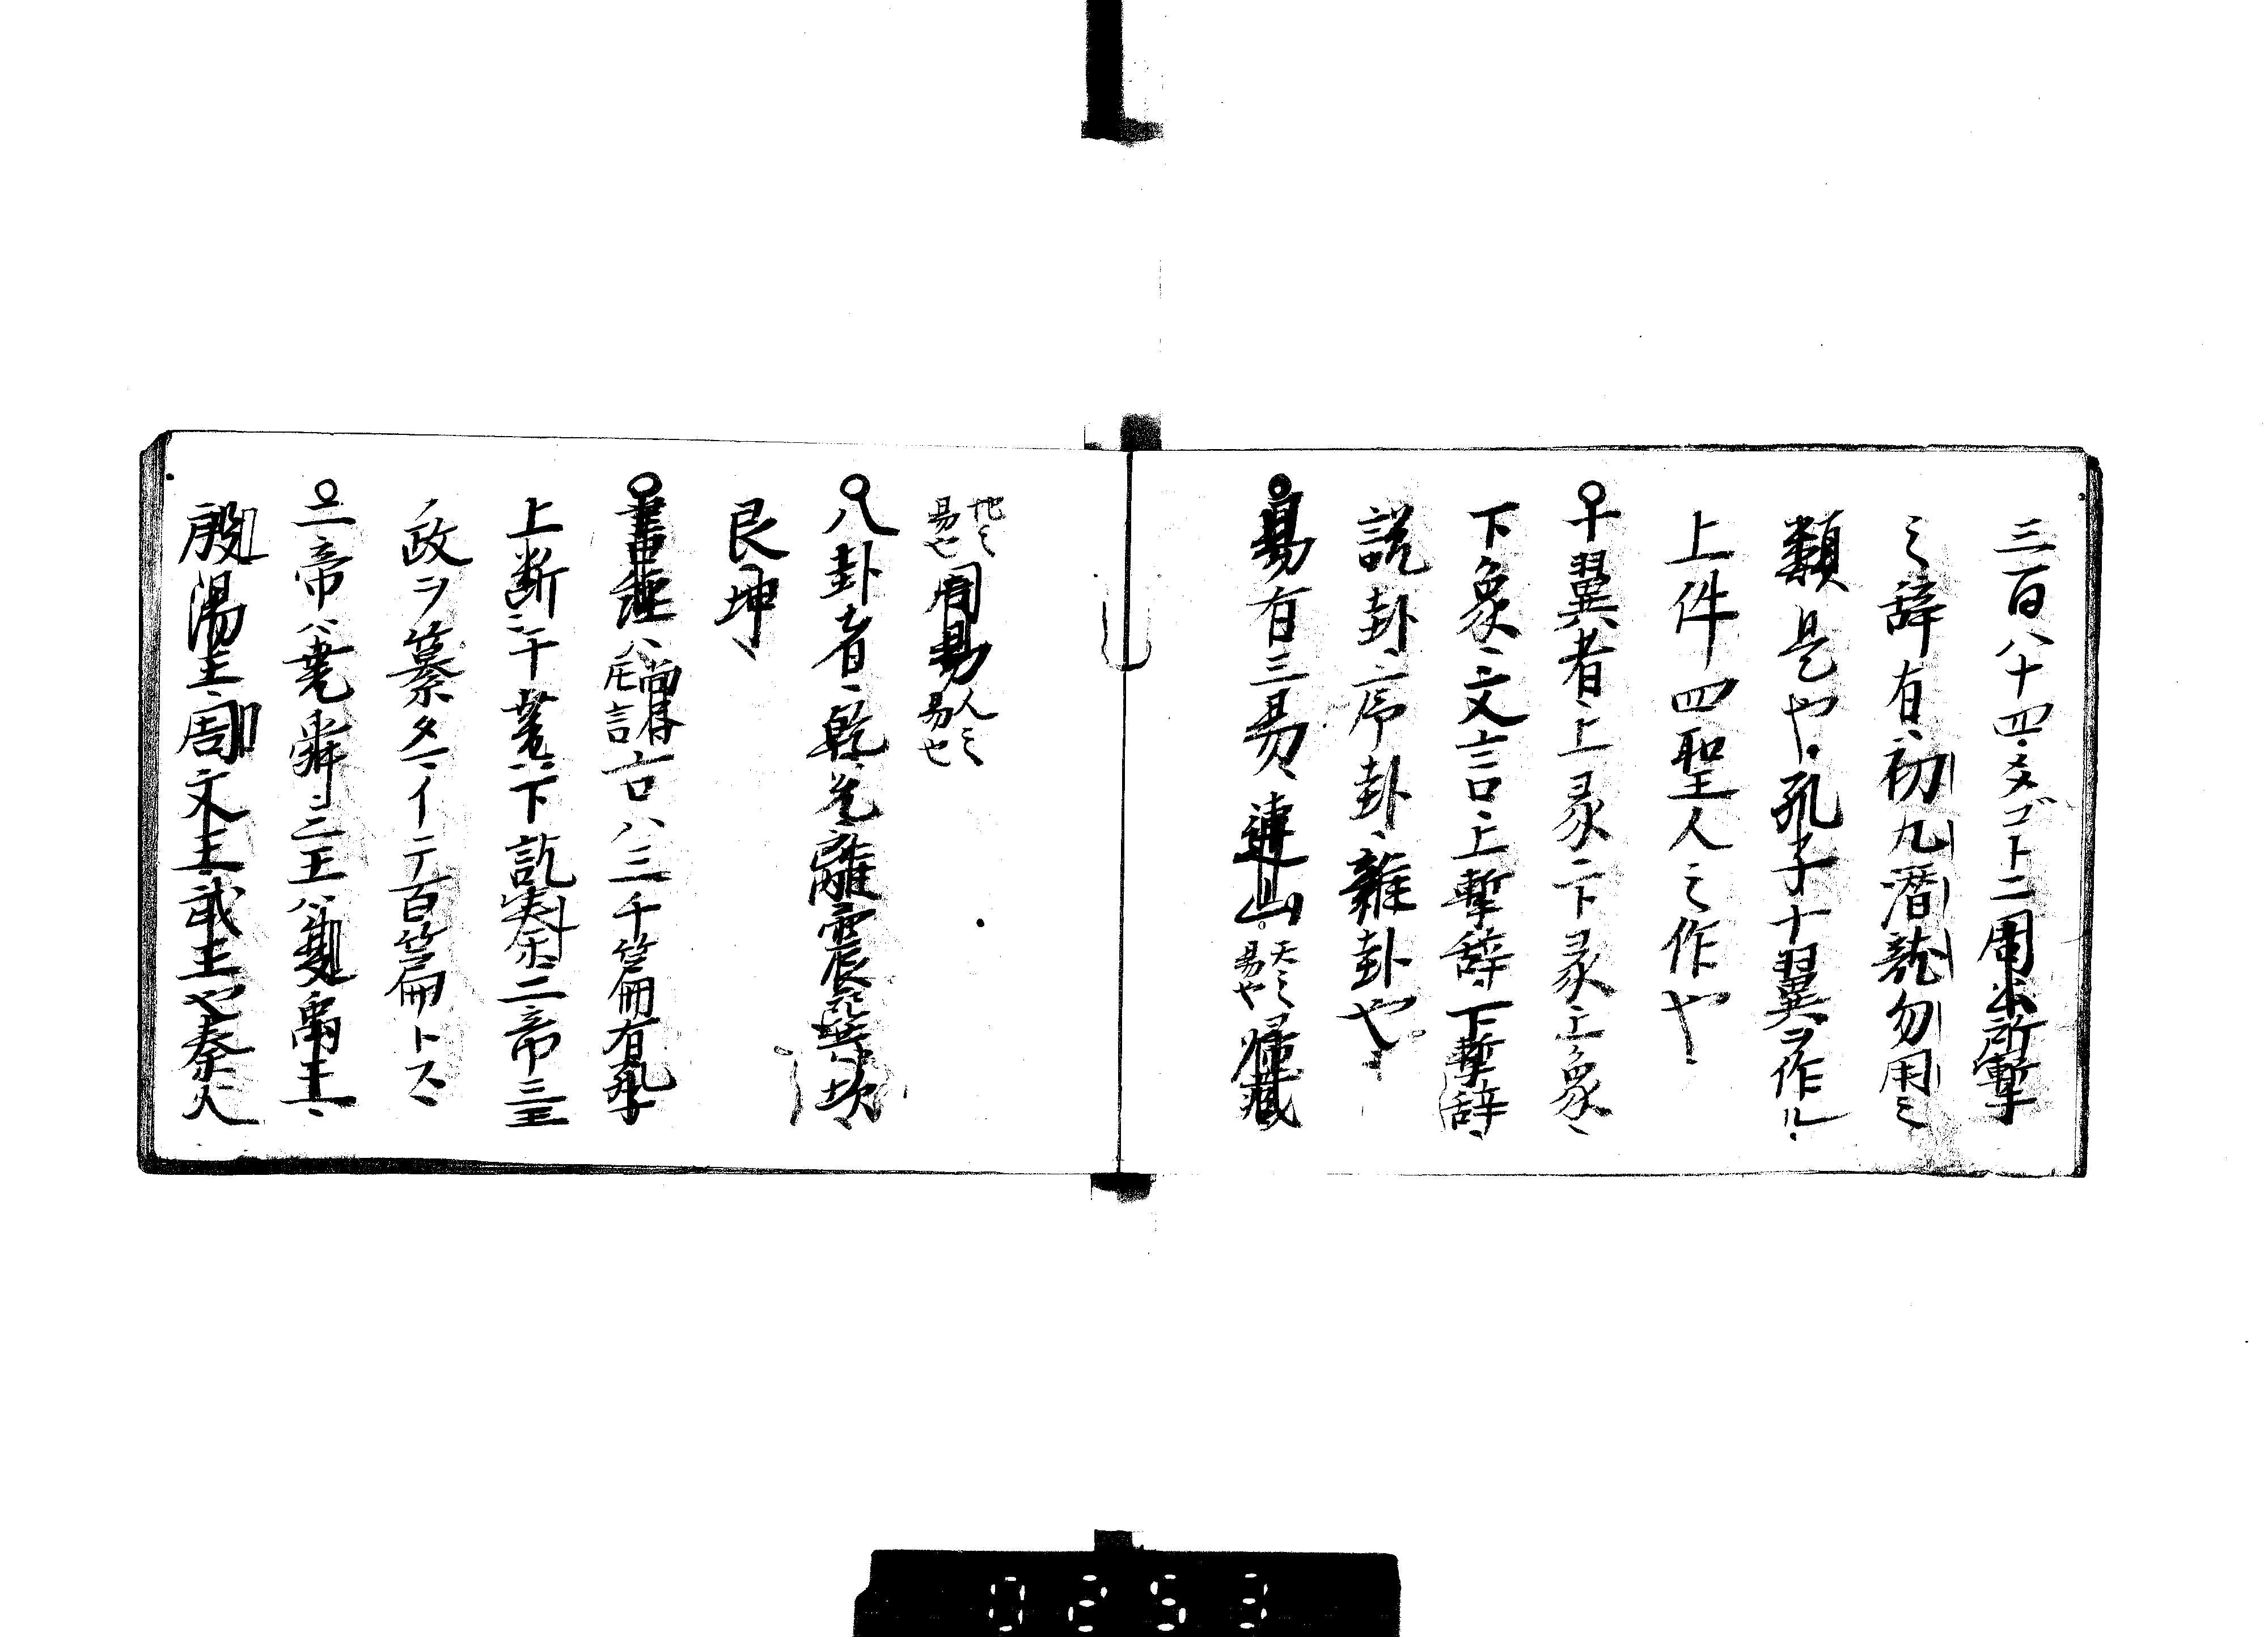 三百八十四、爻ゴトニ周公所繋
之辞有、初九潜龍勿用之
類是也、孔子十翼ヲ作ル、
上件四聖人之作也、
十翼者、上彖、下彖、上象、
下象、文言、上繋辞、下繋辞、
説卦、序卦、雑卦也、
易有三易、連山天之易也帰蔵
地之易也周易人之易也
八卦者、乾、兌、離、震、巽、坎、
艮、坤、
書経ハ尚書古ハ三千篇有、孔子
上断于堯、下訖秦、二帝三王
ノ政ヲ纂タマイテ百篇トス、
二帝ハ堯舜、三王ハ夏禹王、
殷湯王、周文王、武王也、秦火
0253